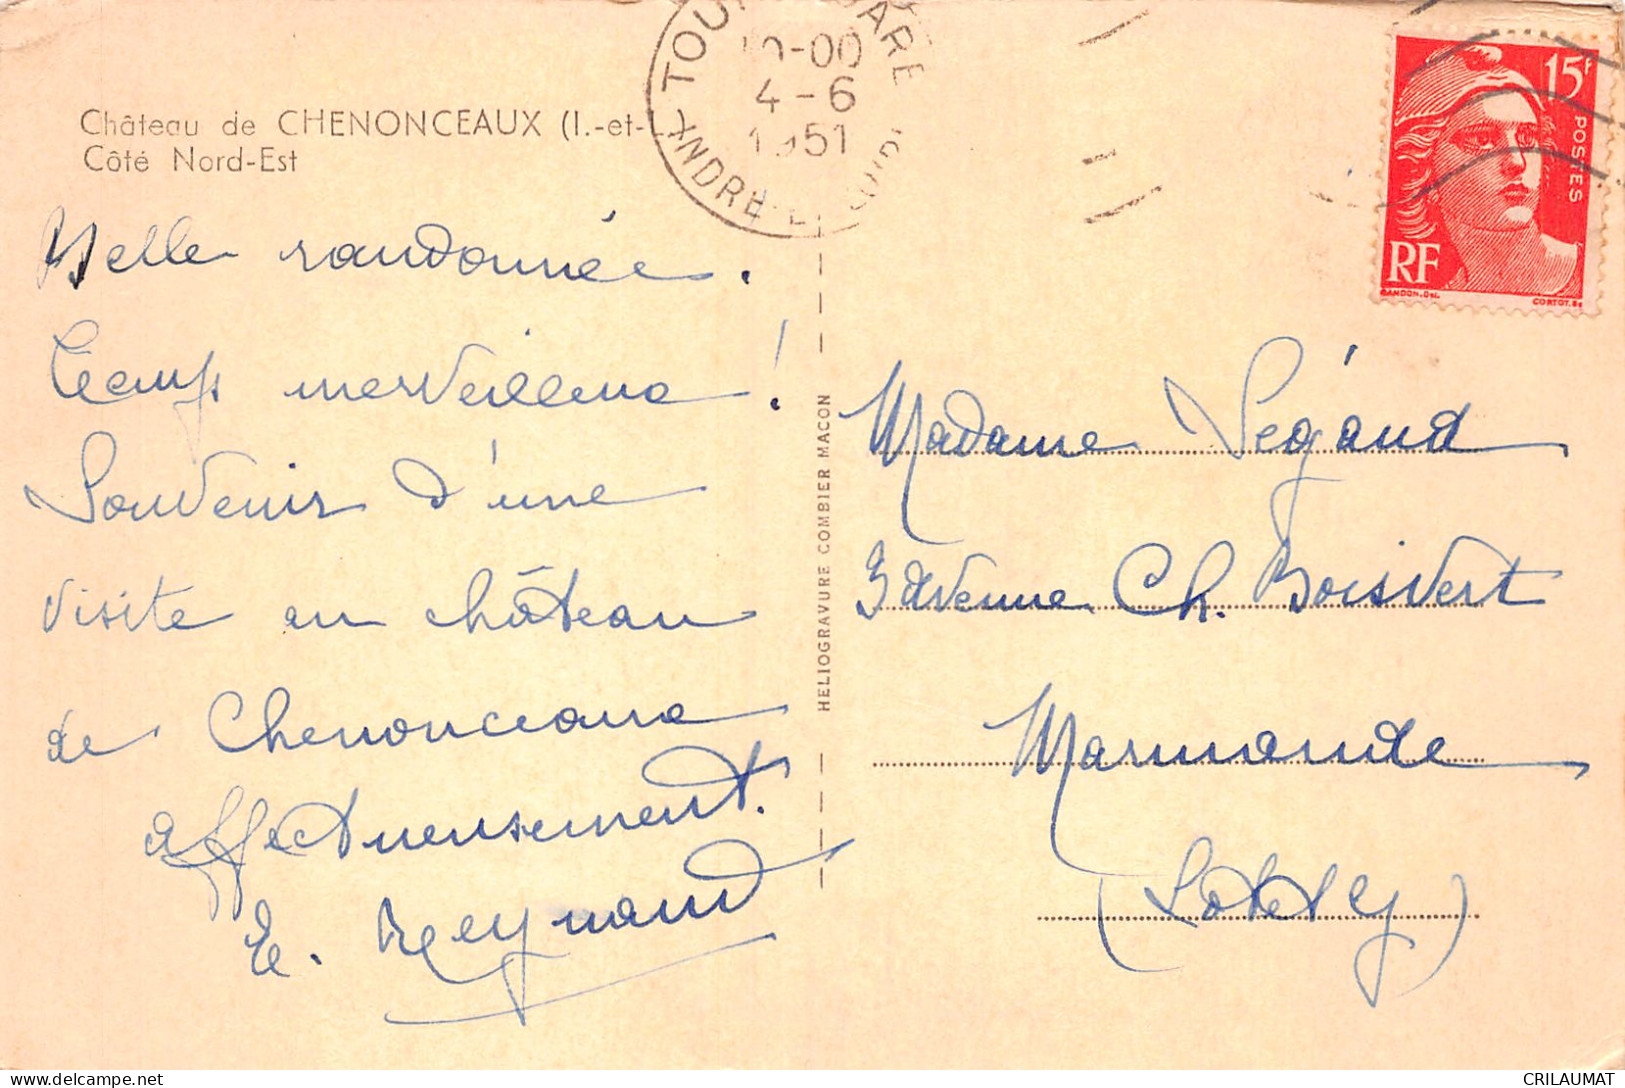 Château de CHENONCEAUX (I.-et-
Côté Nord-Est
Belle randonnée.
Temps merveilleux !
Souvenir d'une
visite au château
de Chenonceaux
affectueusement.
E. Reynaud
HELIOGRAVURE COMBIER MACON
TOU GARE
10-00
4-6
1951
INDRE-E
15F
POSTES
RF
GANDON.Del.
CORTOT.Sc
Madame Légand
3 avenue Ch. Boisvert
Marmande
(Lot et G)
CRILAUMAT